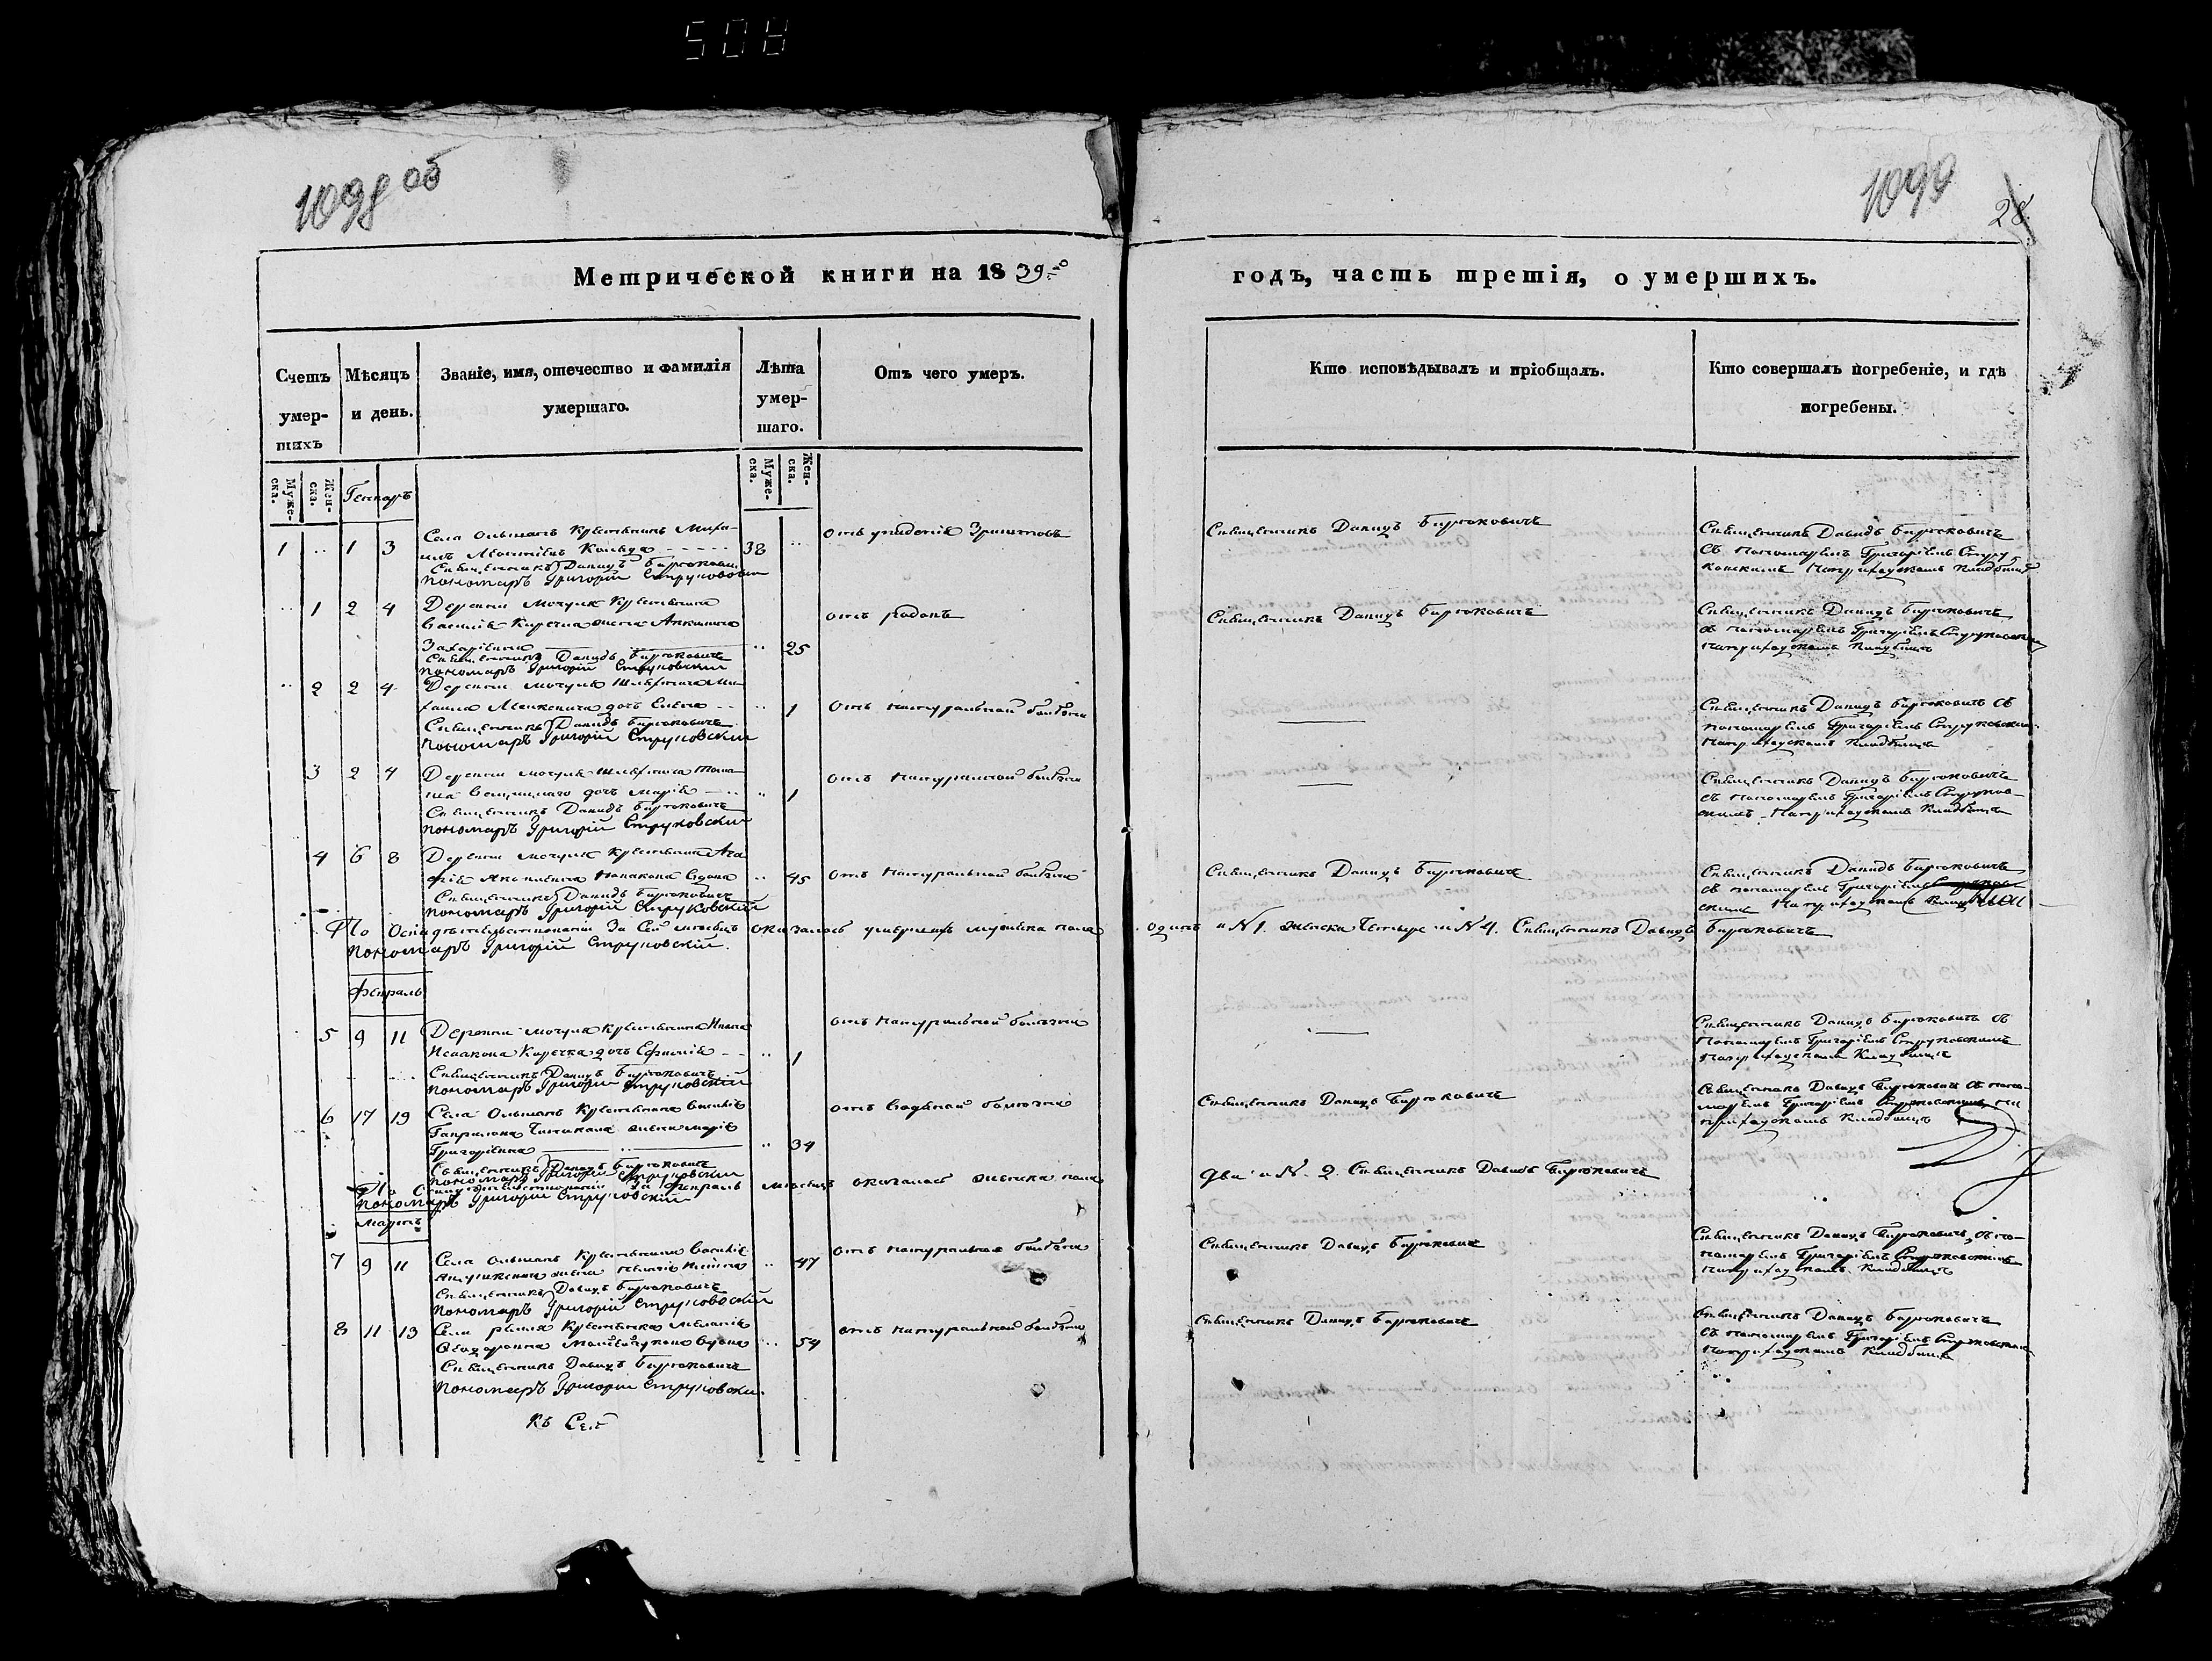 508
1098 об
1099
28
Метрической книги на 1839го
годъ, часть третія, о умершихъ.
Счетъ умер-
шихъ
Мѣсяцъ
и день.
Званіе, имя, отечество и фамилія
умершаго.
Лѣта
умер-
шаго.
Отъ чего умеръ.
Кто исповѣдывалъ и пріобщалъ.
Кто совершалъ погребеніе, и гдѣ
погребены.
Муже-
ска.
Жен-
ска.
Генварь
Муже-
ска.
Жен-
ска.
1 .. 1 3
Села Ольшанъ Крестьянинъ Миха-
илъ 38 ..
Священникъ Давидъ Бирюковичъ
пономарь Григорій Струковскій
Священникъ Давидъ Бирюковичъ
Священникъ Давидъ Бирюковичъ
съ пономаремъ Григоріемъ Стру
ковскимъ На приходскомъ Кладбищѣ
.. 1 2 4
Деревни Мочулъ Крестьянина
Василія жена
Захаріевна .. 25
Священникъ Давидъ Бирюковичъ
пономарь Григорій Струковскій
отъ родовъ
Священникъ Давидъ Бирюковичъ
Священникъ Давидъ Бирюковичъ
съ пономаремъ Григоріемъ Струковскимъ
На приходскомъ Кладбищѣ
.. 2 2 4
Деревни Мочулъ Шляхтича Ми-
хаила дочь Елена .. 1
Священникъ Давидъ Бирюковичъ
пономарь Григорій Струковскій
Отъ натуральной болѣзни
Священникъ Давидъ Бирюковичъ съ
пономаремъ Григоріемъ Струковским
На приходскомъ Кладбищѣ
3 2 4
Деревни Мочулъ Шляхтича
дочь Марія .. 1
Священникъ Давидъ Бирюковичъ
пономарь Григорій Струковскій
Отъ натуральной болѣзни
Священникъ Давидъ Бирюковичъ
съ пономаремъ Григоріемъ Струков-
скимъ На приходскомъ Кладбищѣ
4 6 8
Деревни Мочулъ Крестьянка Ага
фія вдова .. 45
Священникъ Давидъ Бирюковичъ
пономарь Григорій Струковскій
Отъ натуральной болѣзни
Священникъ Давидъ Бирюковичъ
Священникъ Давидъ Бирюковичъ
съ пономаремъ Григоріемъ Струков
скимъ На приходскомъ
По Освидѣтельствовании За Сей мѣсяцъ оказалось умершихъ мужеска пола одинъ и N 1. женска Четыре и N 4. Священникъ Давидъ Бирюковичъ
пономарь Григорій Струковскій.
Февраль
5 9 11
Деревни Мочулъ Крестьянина Ивана
дочь Ефимія .. 1
Священникъ Давидъ Бирюковичъ
пономарь Григорій Струковскій
отъ натуральной болѣзни
Священникъ Давидъ Бирюковичъ съ
пономаремъ Григоріемъ Струковскимъ
На приходскомъ Кладбищѣ
6 17 19
Села Ольшанъ Крестьянина Василія
жена Марія
Григоріевна .. 34
Священникъ Давидъ Бирюковичъ
пономарь Григорій Струковскій
Священникъ Давидъ Бирюковичъ
Священникъ Давидъ Бирюковичъ съ поно-
маремъ Григоріемъ Струковскимъ на
приходскомъ Кладбищѣ
По Освидѣтельствовании за Февраль мѣсяцъ оказалось женска пола два и N. 2. Священникъ Давидъ Бирюковичъ
пономарь Григорій Струковскій
Мартъ
7 9 11
Села Ольшанъ Крестьянина Василія
жена .. 47
Священникъ Давидъ Бирюковичъ
пономарь Григорій Струковскій
отъ натуральной болѣзни
Священникъ Давидъ Бирюковичъ
Священникъ Давидъ Бирюковичъ, съ по-
номаремъ Григоріемъ Струковскимъ
На приходскомъ Кладбищѣ
8 11 13
Села Крестьянка Меланія
вдова .. 54
Священникъ Давидъ Бирюковичъ
пономарь Григорій Струковски.
отъ натуральной болѣзни
Священникъ Давидъ Бирюковичъ
Священникъ Давидъ Бирюковичъ
съ пономаремъ Григоріемъ Струковским
На приходскомъ Кладбищѣ
Къ Сей